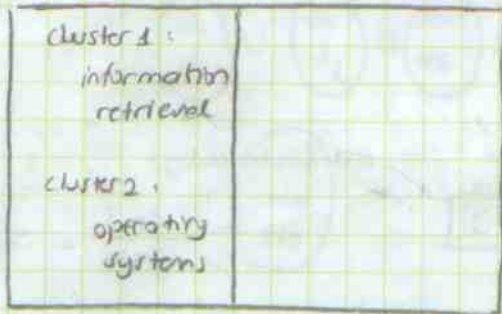 cluster 1 :
information
retrieval
cluster 2 .
operating
systems